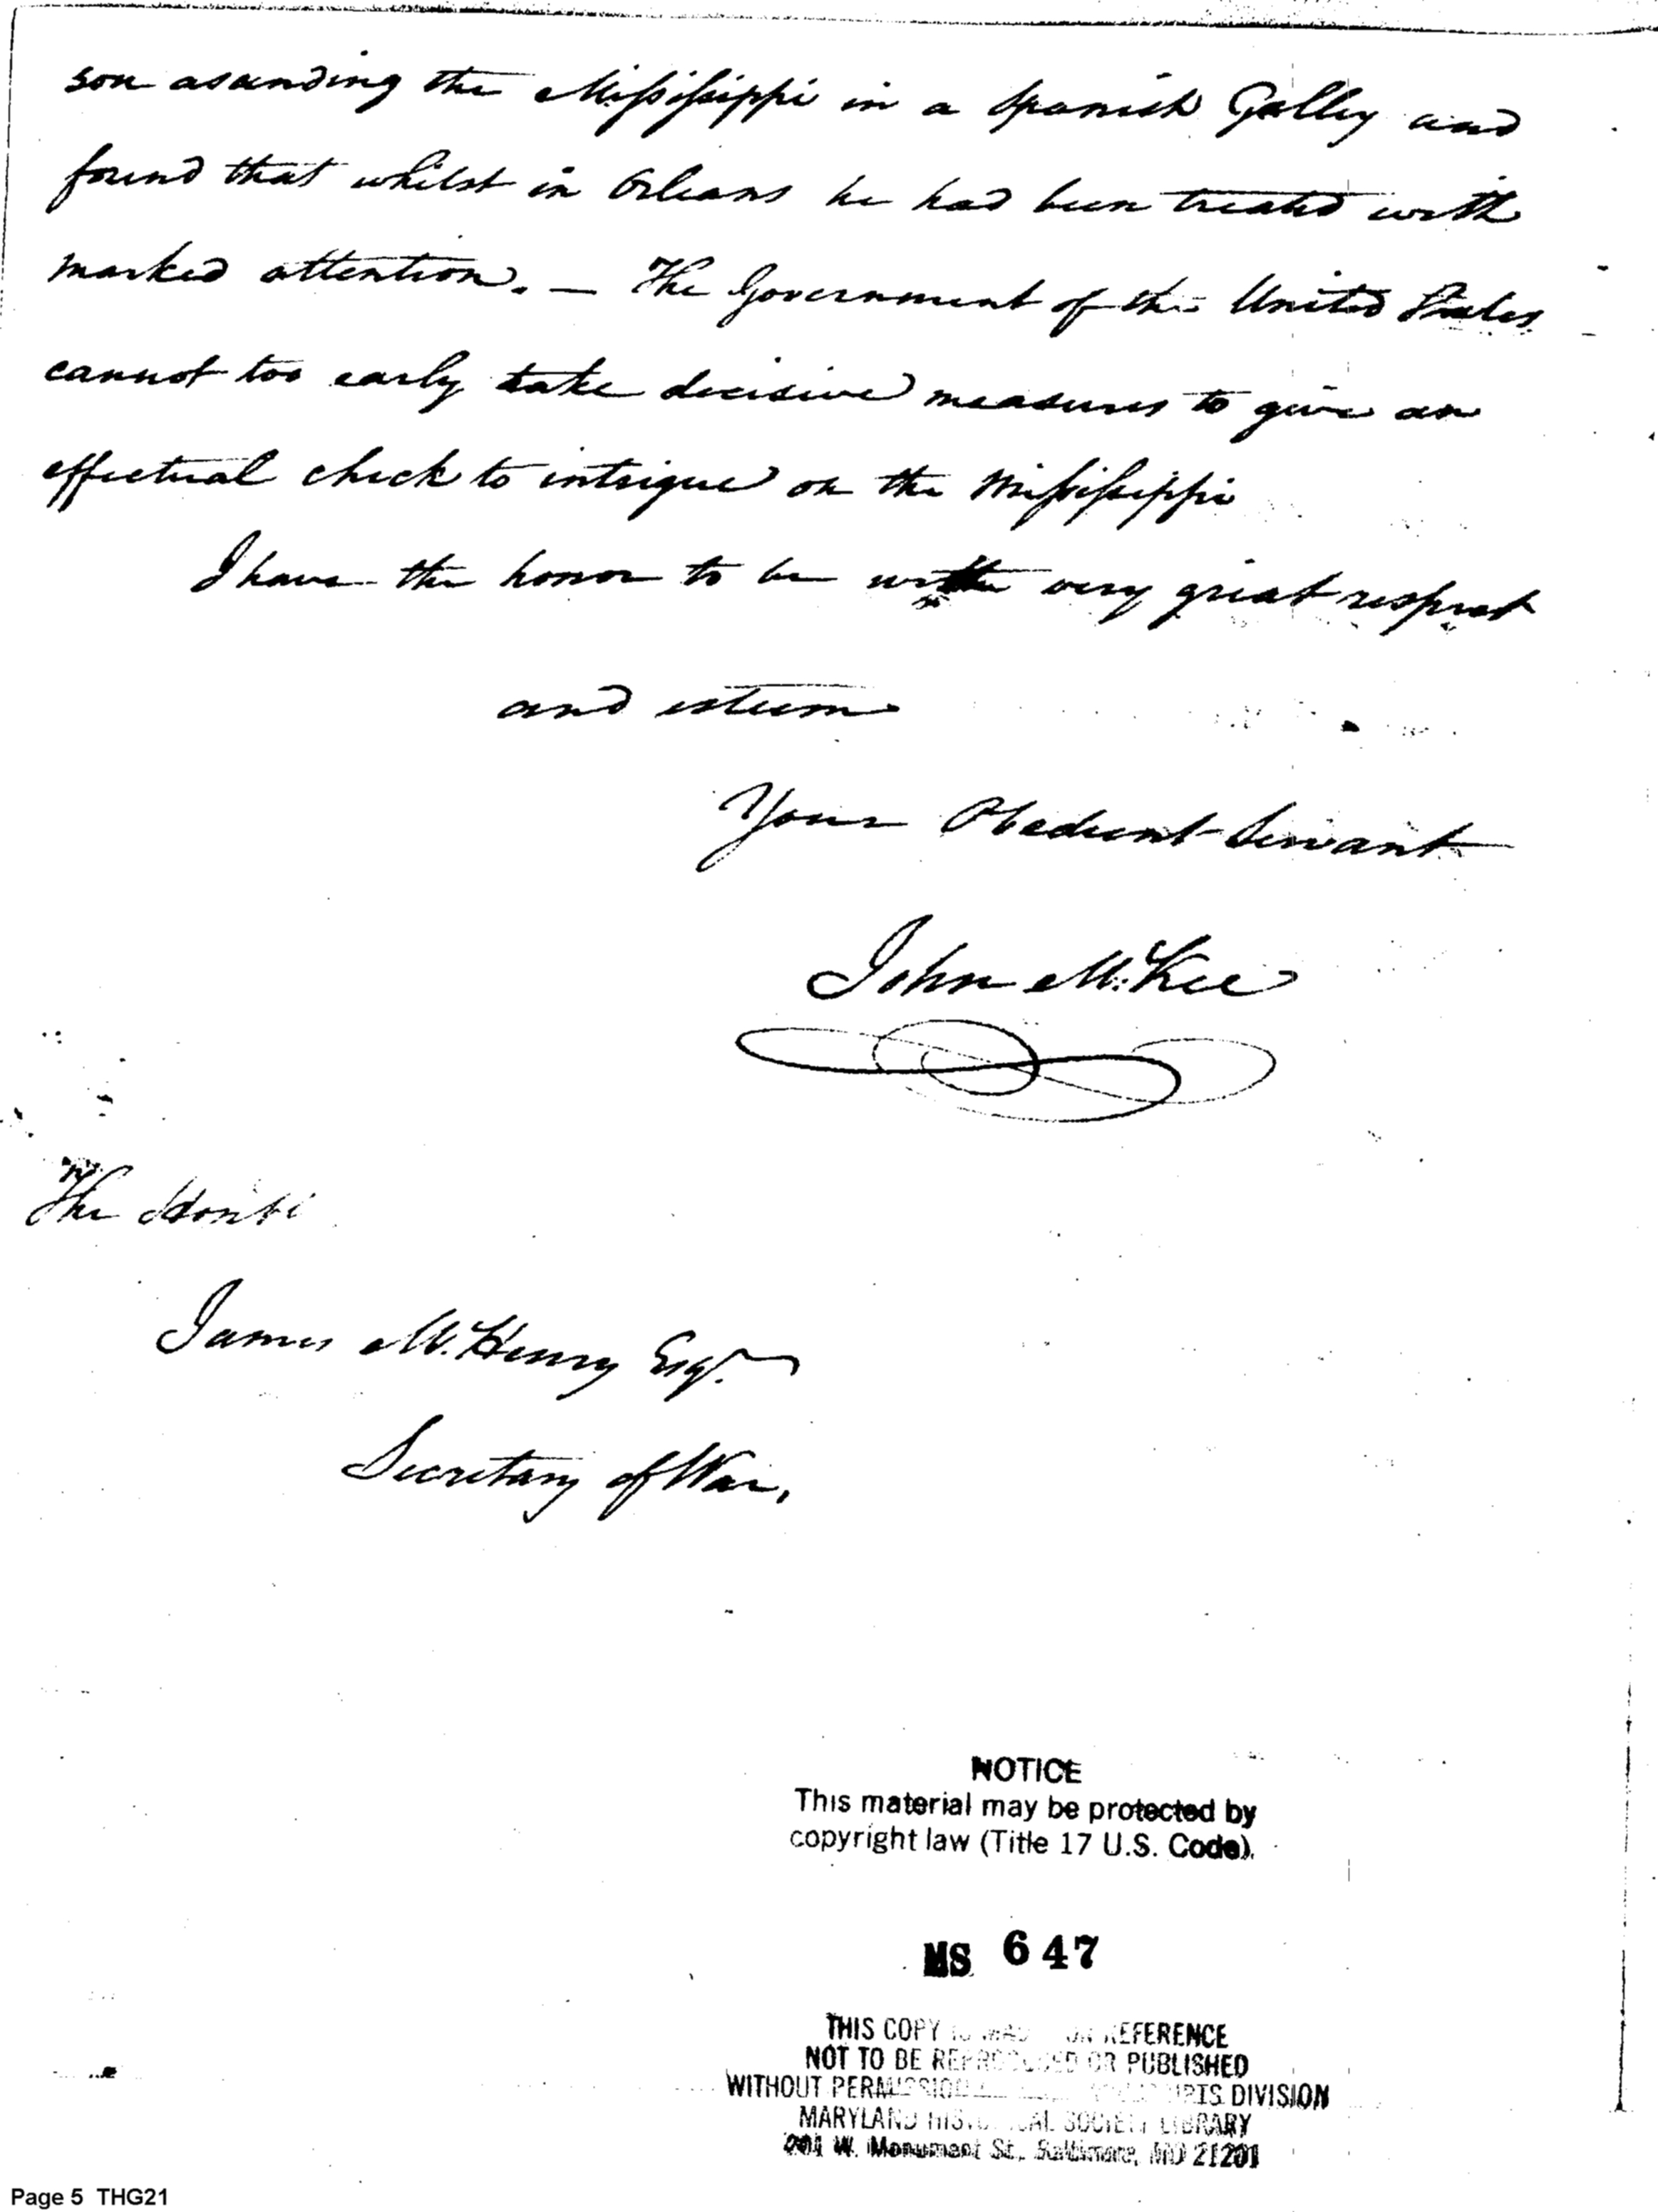 son asending the Mississippi in a Spanish Galley and
found that whilst in Orleans he had been treated with
marked attention. — The Government of the United States
cannot too early take decisive measures to give an
effectual check to intrigue on the Mississippi
I have the honor to be with very great respect
and esteem
Your Obedient Servant
John M:Kee
The Honbl
James M.Henry Esqr.
Secretary of War,
NOTICE
This material may be protected by
copyright law (Title 17 U.S. Code).
MS 647
THIS COPY IS MADE FOR REFERENCE
NOT TO BE REPRODUCED OR PUBLISHED
WITHOUT PERMISSION MANUSCRIPTS DIVISION
MARYLAND HISTORICAL SOCIETY LIBRARY
201 W. Monument St., Baltimore, MD 21201
Page 5 THG21